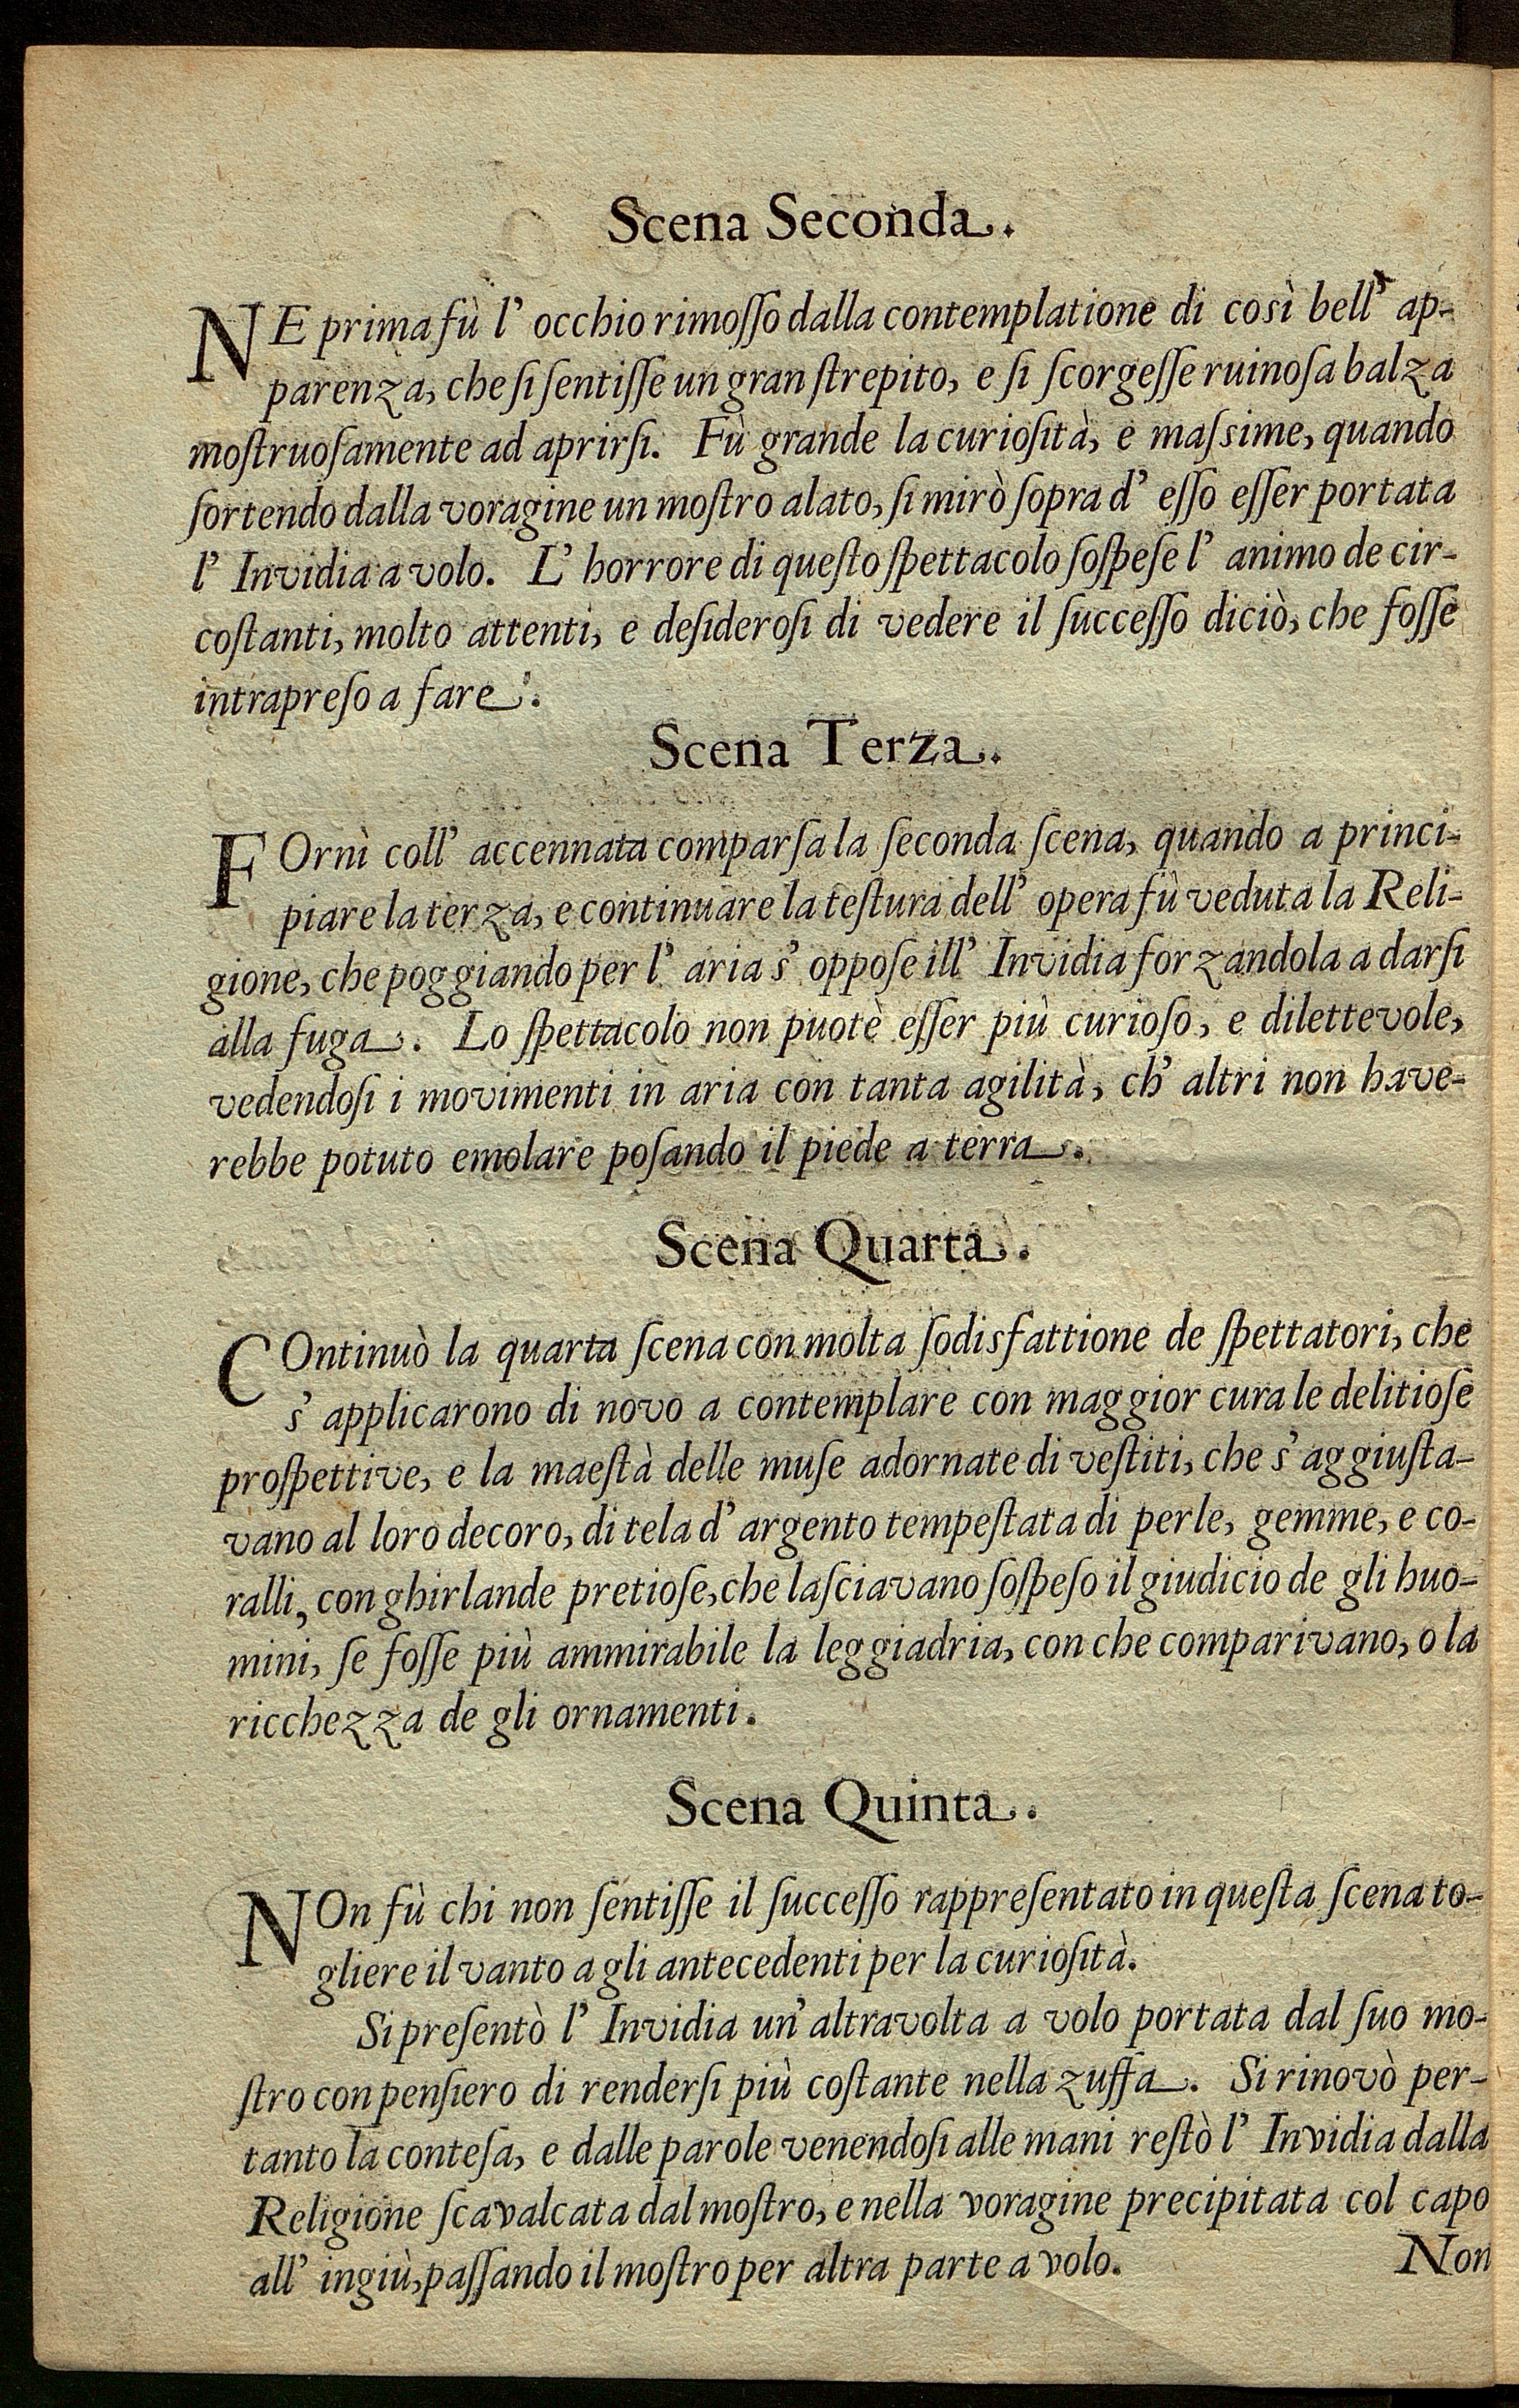 Scena Seconda.
NE prima fù l' occhio rimoſſo dalla contemplatione di così bell' ap-
parenza, che ſi ſentiſſe un gran ſtrepito, e ſi ſcorgeſſe ruinoſa balza
moſtruoſamente ad aprirſi. Fù grande la curioſità, e maſsime, quando
ſortendo dalla voragine un moſtro alato, ſi mirò ſopra d' eſſo eſſer portata
l' Invidia a volo. L' horrore di queſto ſpettacolo ſoſpeſe l' animo de cir-
coſtanti, molto attenti, e deſideroſi di vedere il ſucceſſo diciò, che foſſe
intrapreſo a fare.
Scena Terza.
FOrnì coll' accennata comparſa la ſeconda ſcena, quando a princi-
piare la terza, e continuare la teſtura dell' opera fù veduta la Reli-
gione, che poggiando per l' aria s' oppoſe ill' Invidia forzandola a darſi
alla fuga. Lo ſpettacolo non puotè eſſer più curioſo, e dilettevole,
vedendoſi i movimenti in aria con tanta agilità, ch' altri non have-
rebbe potuto emolare poſando il piede a terra.
Scena Quarta.
COntinuò la quarta ſcena con molta ſodisfattione de ſpettatori, che
s' applicarono di novo a contemplare con maggior cura le delitioſe
proſpettive, e la maeſtà delle muſe adornate di veſtiti, che s' aggiuſta-
vano al loro decoro, di tela d' argento tempeſtata di perle, gemme, e co-
ralli, con ghirlande pretioſe, che laſciavano ſoſpeſo il giudicio de gli huo-
mini, ſe foſſe più ammirabile la leggiadria, con che comparivano, o la
ricchezza de gli ornamenti.
Scena Quinta.
NOn fù chi non ſentiſſe il ſucceſſo rappreſentato in queſta ſcena to-
gliere il vanto a gli antecedenti per la curioſità.
Si preſentò l' Invidia un' altravolta a volo portata dal ſuo mo-
ſtro con penſiero di renderſi più coſtante nella zuffa. Si rinovò per-
tanto la conteſa, e dalle parole venendoſi alle mani reſtò l' Invidia dalla
Religione ſcavalcata dal moſtro, e nella voragine precipitata col capo
all' ingiù, paſſando il moſtro per altra parte a volo.
Non